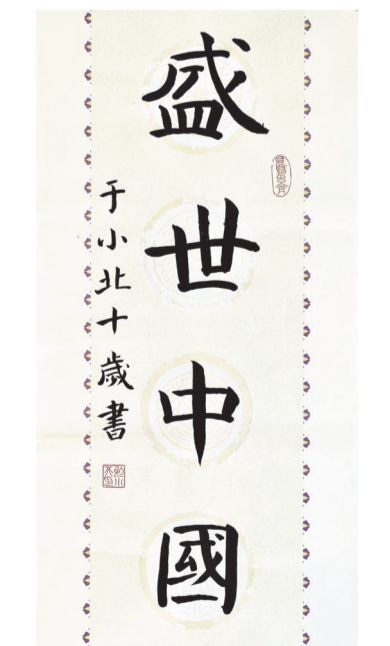 盛世中國
于小北十歲書